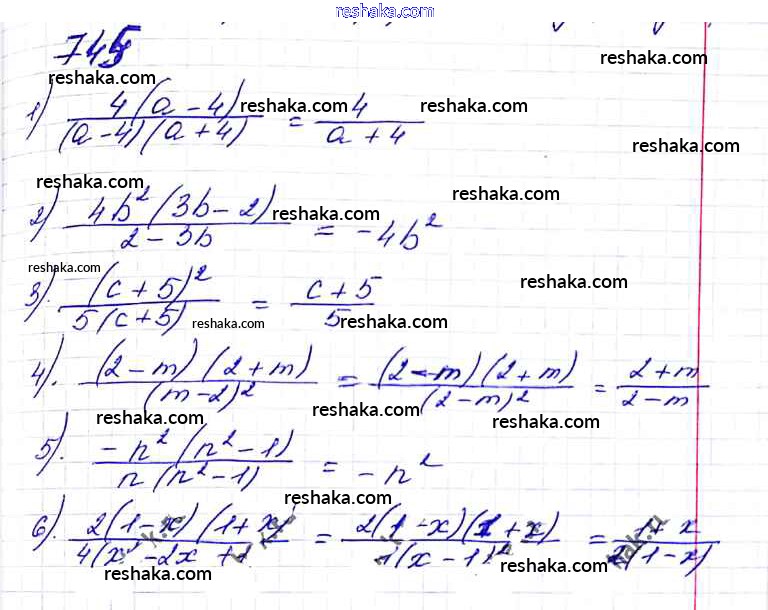 reshaka.com
745
reshaka.com reshaka.com
1) 4(a-4) / (a-4)(a+4) = 4 / a+4
reshaka.com reshaka.com reshaka.com
reshaka.com reshaka.com
2) 4b² (3b-2) / 2-3b = -4b²
reshaka.com
reshaka.com reshaka.com
3). (c+5)² / 5(c+5) = c+5 / 5
reshaka.com reshaka.com
4). (2-m)(2+m) / (m-2)² = (2-m)(2+m) / (2-m)² = 2+m / 2-m
reshaka.com reshaka.com reshaka.com
5). -n² (n²-1) / n(n²-1) = -n²
reshaka.com
6). 2(1-x)(1+x) / 4(x²-2x+1 = 2(1-x)(1+x) / (x-1)² = 1+x / 2(1-x)
reshaka.com reshaka.com